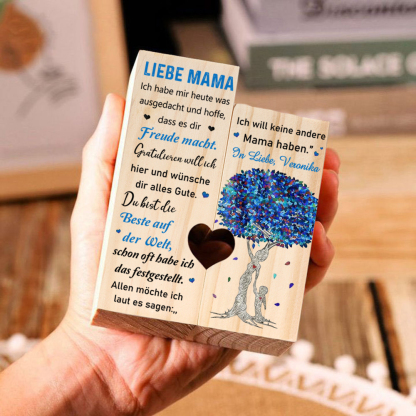 LIEBE MAMA
Ich habe mir heute was
ausgedacht und hoffe,
dass es dir
Freude macht.
Gratulieren will ich
hier und wünsche
dir alles Gute.
Du bist die
Beste auf
der Welt,
schon oft habe ich
das festgestellt.
Allen möchte ich
laut es sagen:,,
Ich will keine andere
Mama haben.”
In Liebe, Veronika
THE SOLACE OF